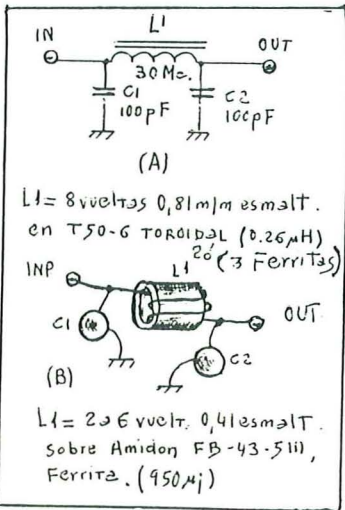 L1
IN
OUT
30 Mz.
C1
100pF
C2
100pF
(A)
L1= 8 vueltas 0,81 m/m esmalt.
en T50-6 TOROIDAL (0.26µH)
26 (3 Ferritas)
INP
L1
OUT.
C1
C2
(B)
L1= 2 a 6 vuelt. 0,41 esmalt.
sobre Amidon FB-43-5111,
Ferrita. (950µi)